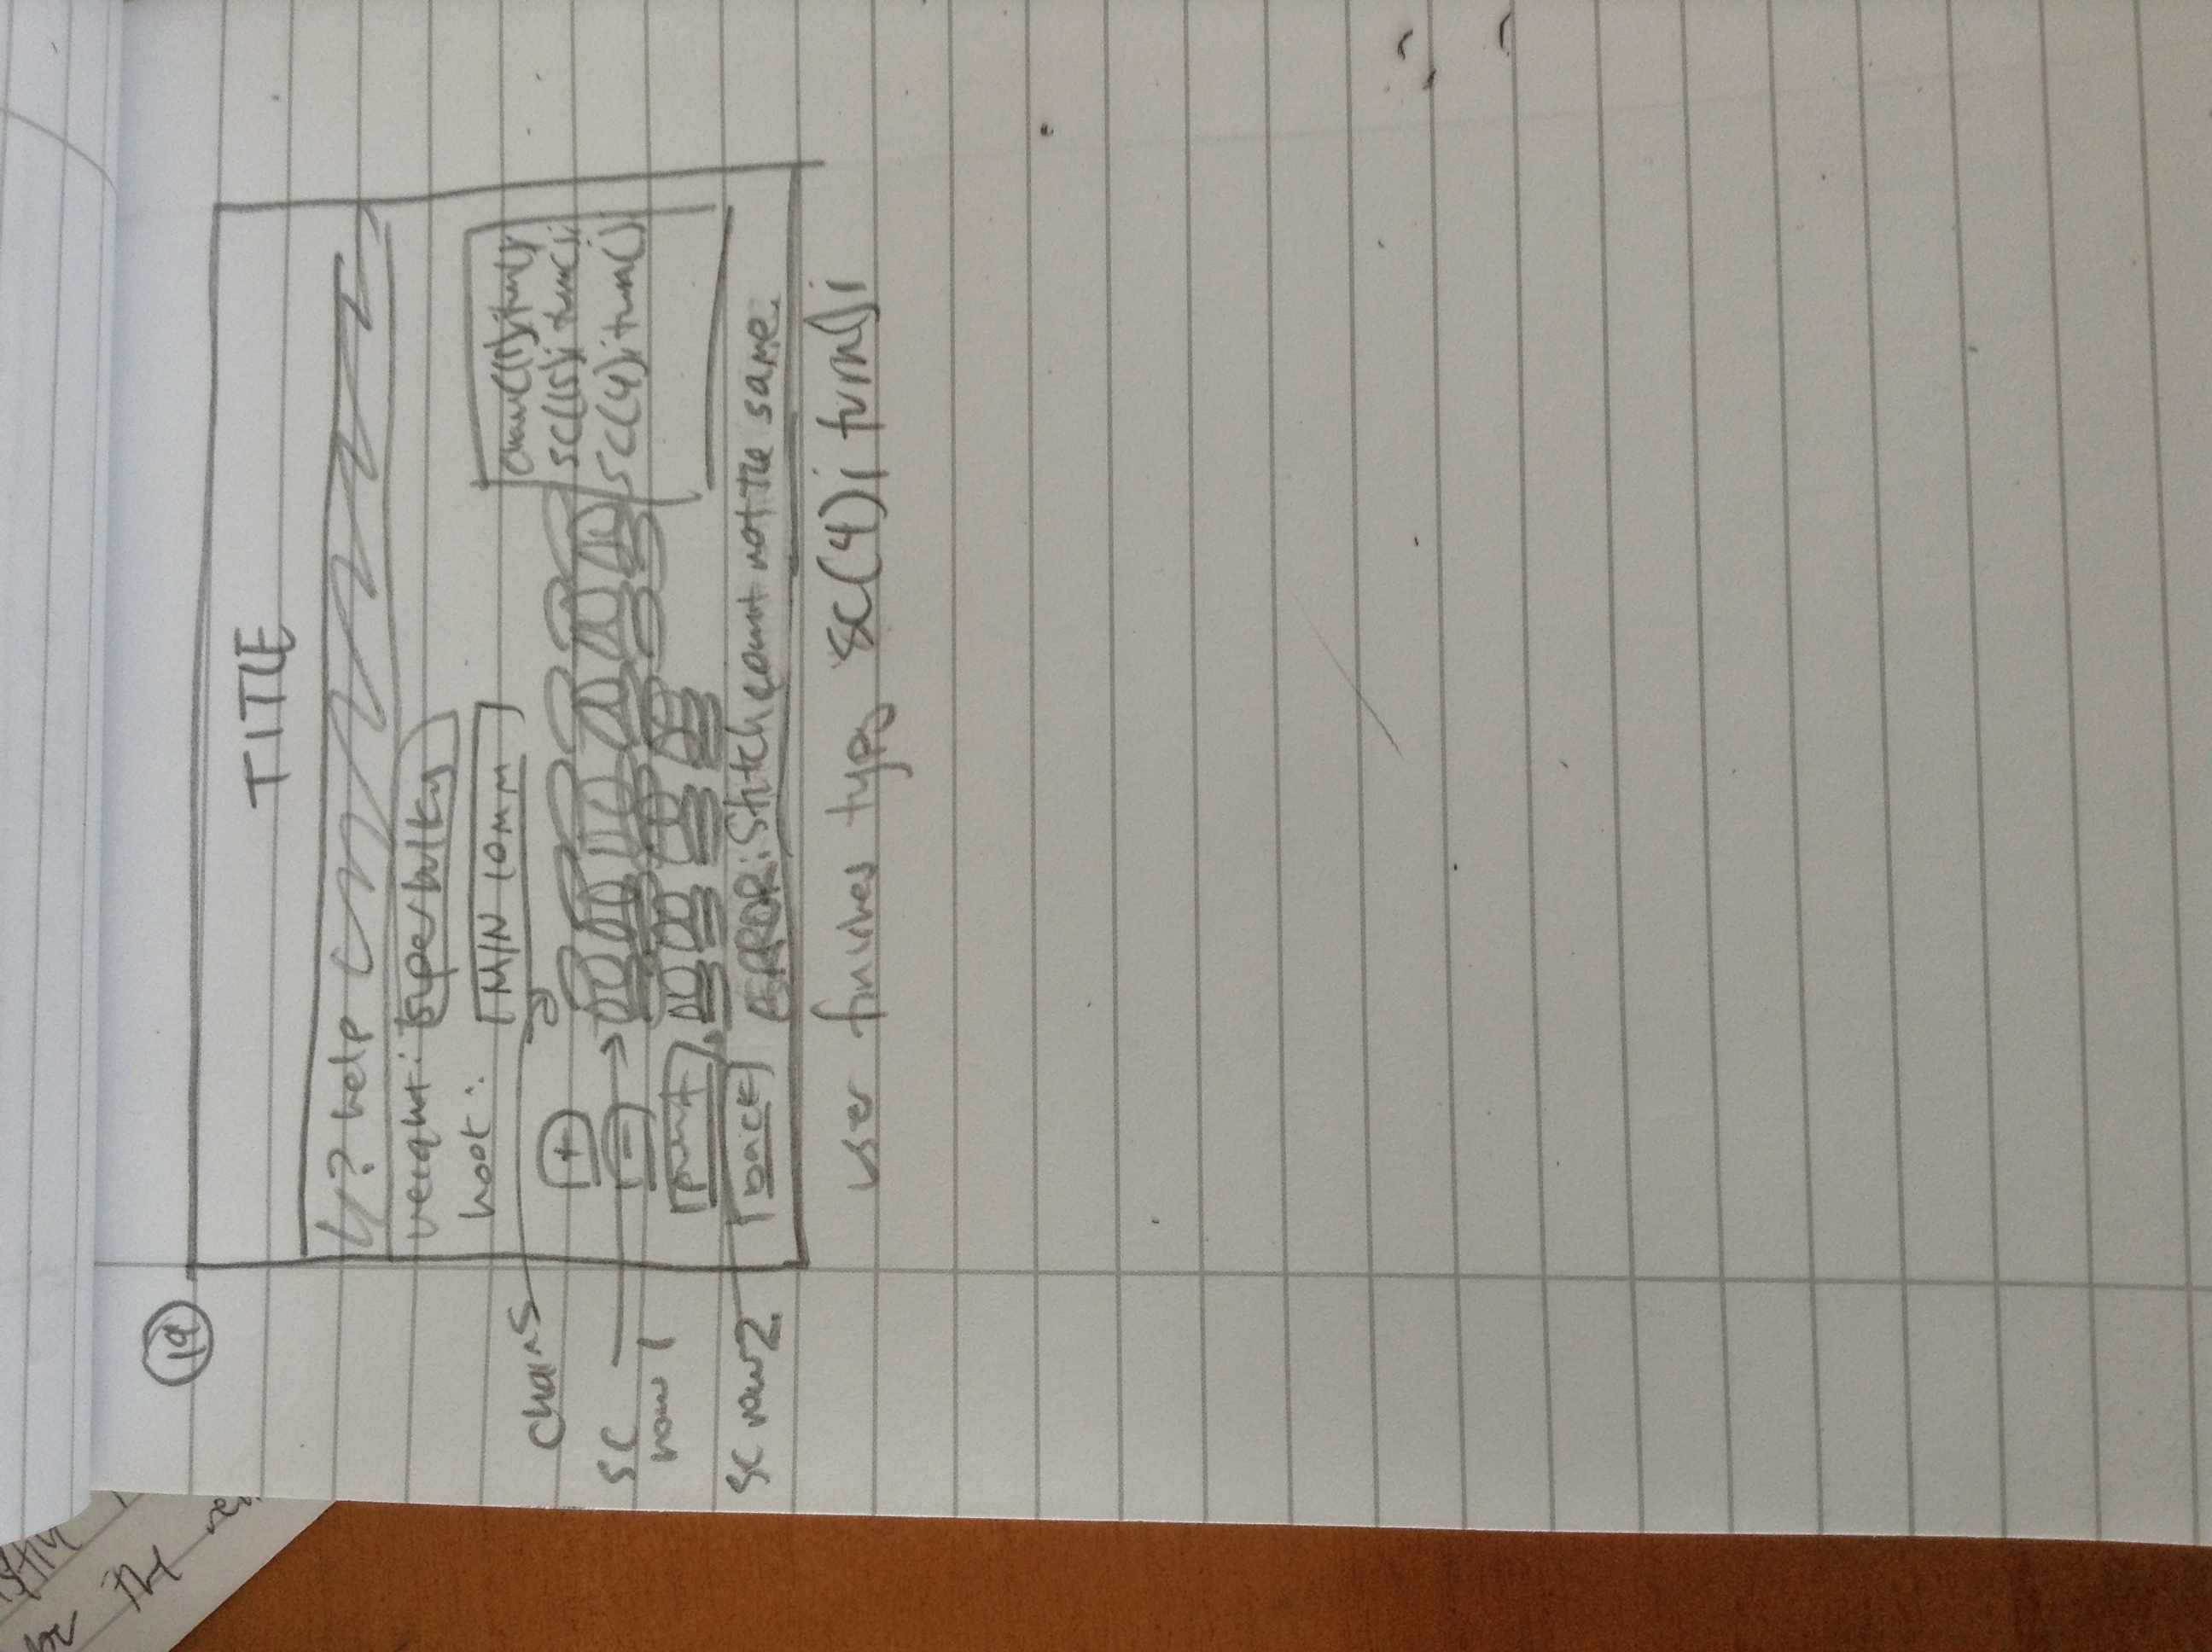 19
TITLE
? help
weight: super bulky
hook: M/N 10mm
chains
+
sc
row 1
-
print
sc row 2
back
sc(15); turn();
sc(4); turn();
ERROR: Stitch count not the same.
user finishes typing sc(4); turn();